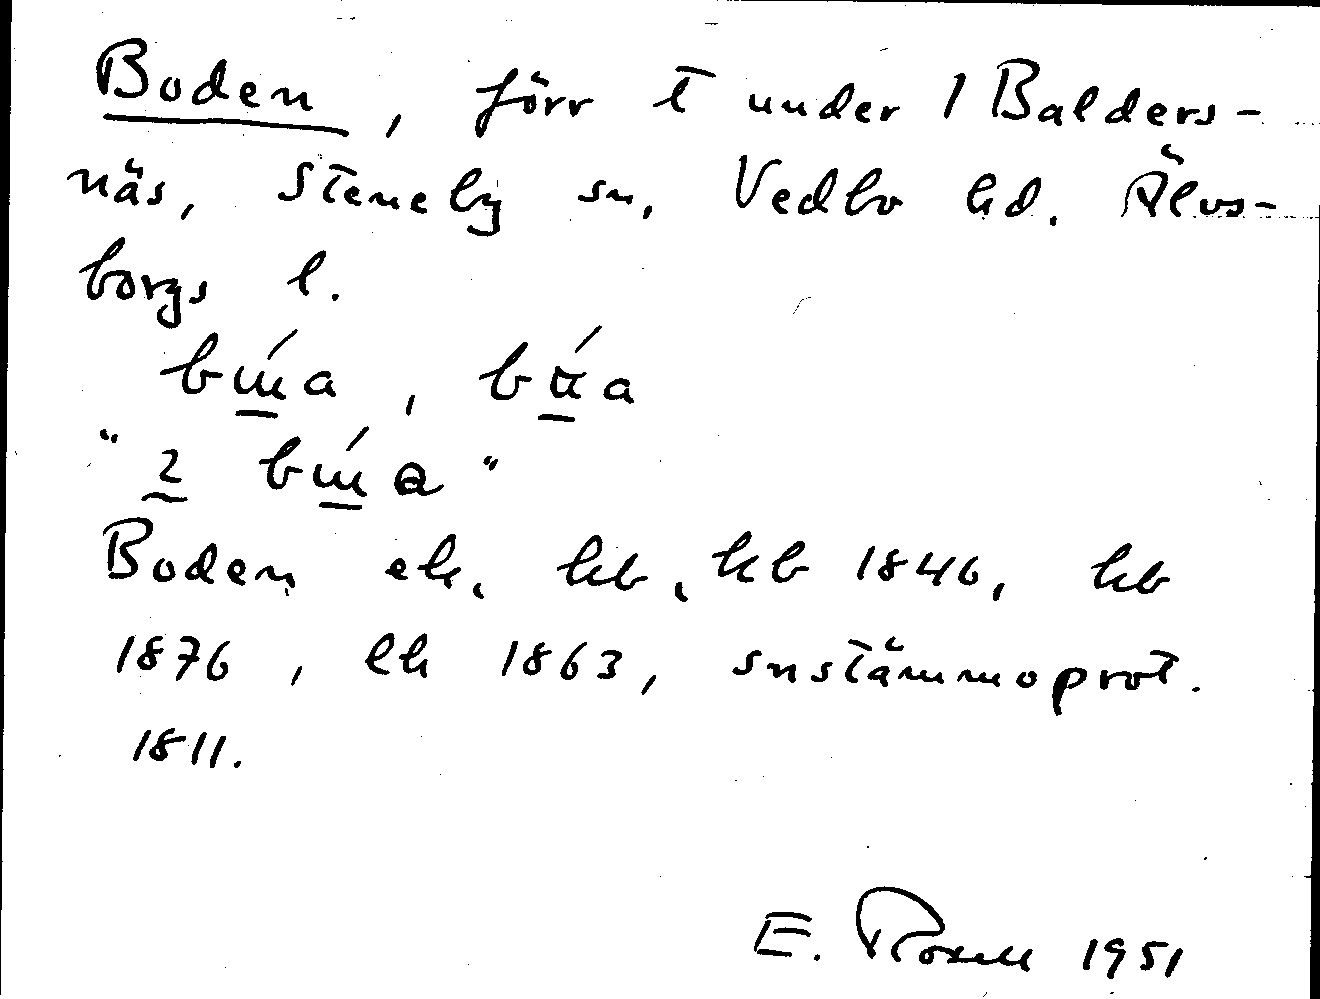 Boden, förr t under 1 Balders-
näs, Steneby sn, Vedbo hd. Älvs-
borgs l.
Boden ek, kb, hb 1846, kb
1876, lh 1863, snstämmoprot.
1811.
E. Rosell 1951